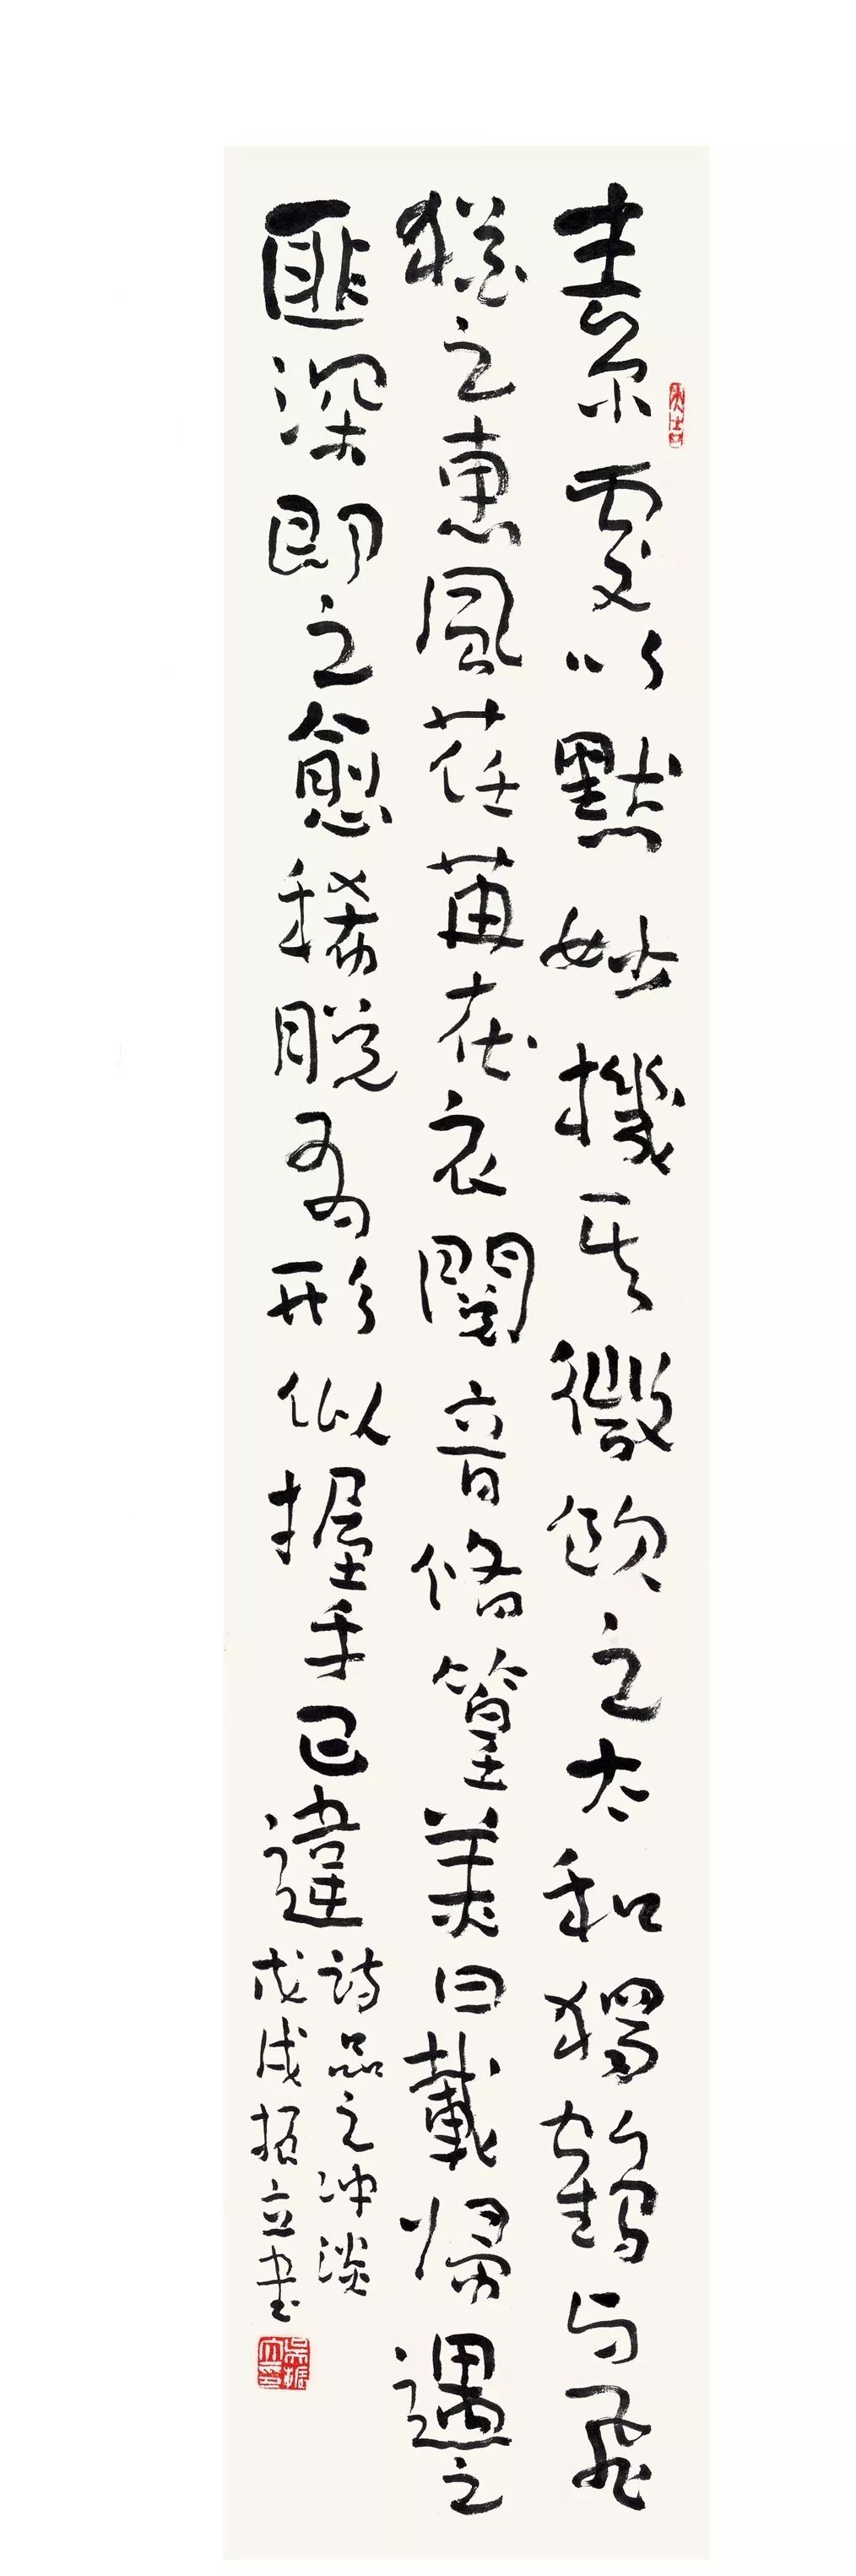 素處以默妙機其微飲之太和獨鶴与飛
猶之惠風荏苒在衣閱音脩篁美曰載歸遇之
匪深即之愈稀脫有形似握手已違
詩品之冲淡
戊戌振立書
吳振立印